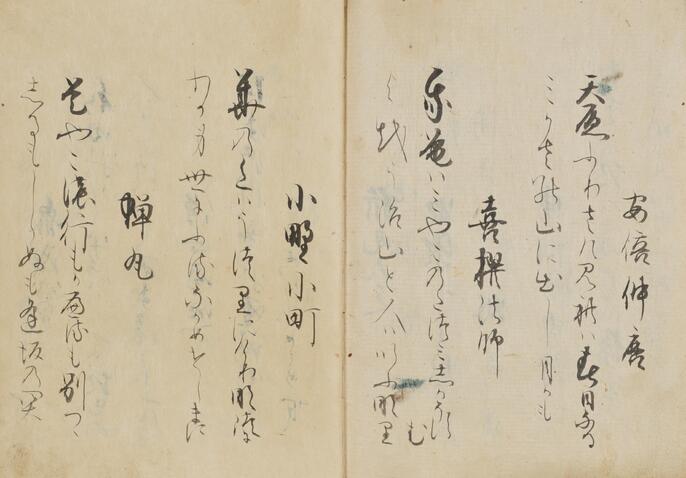 安倍仲麿
天原ふりさけ見れは春日なる
三かさの山に出し月かも
喜撰法師
我庵はみやこのたつみしかそすむ
よを宇治山と人はいふ也
小野小町
華の色はうつりにけりな徒
わか身世にふるなかめせしまに
蝉丸
是やこ濃行もかへるも別つゝ
しるもしらぬも逢坂の関